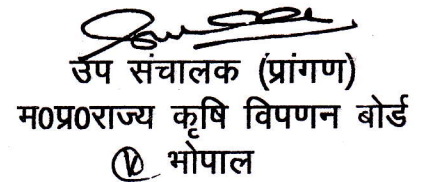 उप संचालक (प्रांगण)
म0प्र0राज्य कृषि विपणन बोर्ड
भोपाल